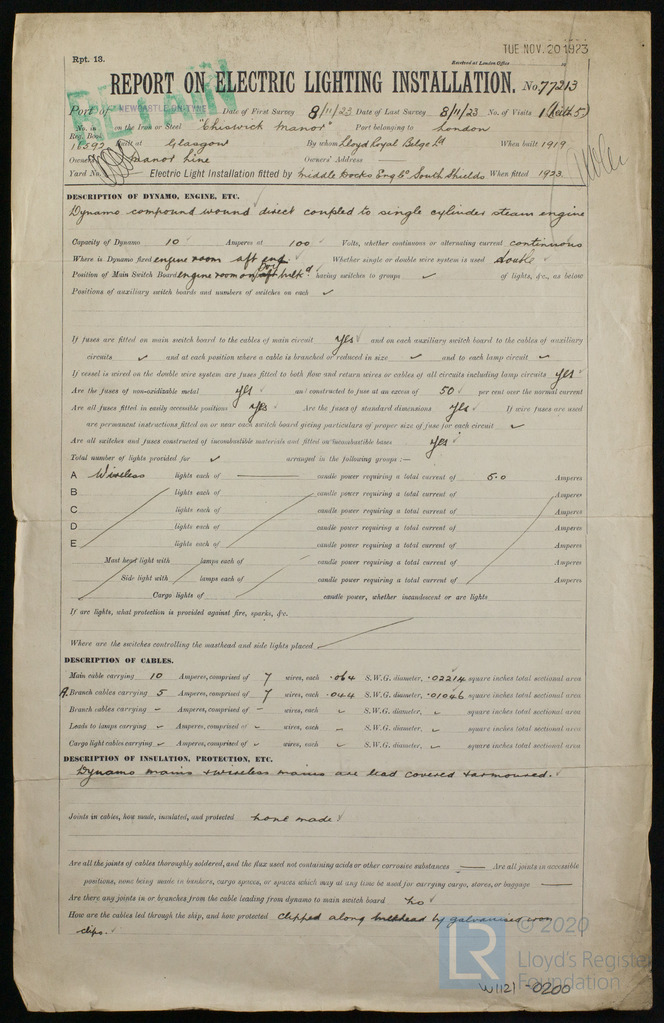 TUE NOV. 20 1923
Rpt. 13.
Received at London Office
REPORT ON ELECTRIC LIGHTING INSTALLATION. No. 77213
RETAIN
Port of NEWCASTLE-ON-TYNE Date of First Survey 8/11/23 Date of Last Survey 8/11/23 No. of Visits 1
No. in Reg. Book on the Iron or Steel "Chiswick Manor" Port belonging to London
16592 Built at Glasgow By whom Lloyd Royal Belge Ld When built 1919
Owners Manor Line Owners' Address
Yard No. Electric Light Installation fitted by Middle Docks Eng Co South Shields When fitted 1923
DESCRIPTION OF DYNAMO, ENGINE, ETC.
Dynamo compound wound direct coupled to single cylinder steam engine
Capacity of Dynamo 10 Amperes at 100 Volts, whether continuous or alternating current continuous
Where is Dynamo fixed engine room aft end Whether single or double wire system is used double
Position of Main Switch Board engine room on aft bulkd having switches to groups of lights, &c., as below
Positions of auxiliary switch boards and numbers of switches on each
If fuses are fitted on main switch board to the cables of main circuit yes and on each auxiliary switch board to the cables of auxiliary
circuits and at each position where a cable is branched or reduced in size and to each lamp circuit
If vessel is wired on the double wire system are fuses fitted to both flow and return wires or cables of all circuits including lamp circuits yes
Are the fuses of non-oxidizable metal yes and constructed to fuse at an excess of 50 per cent over the normal current
Are all fuses fitted in easily accessible positions yes Are the fuses of standard dimensions yes If wire fuses are used
are permanent instructions fitted on or near each switch board giving particulars of proper size of fuse for each circuit
Are all switches and fuses constructed of incombustible materials and fitted on incombustible bases yes
Total number of lights provided for arranged in the following groups :—
A Wireless lights each of candle power requiring a total current of 5.0 Amperes
B lights each of candle power requiring a total current of Amperes
C lights each of candle power requiring a total current of Amperes
D lights each of candle power requiring a total current of Amperes
E lights each of candle power requiring a total current of Amperes
Mast head light with lamps each of candle power requiring a total current of Amperes
Side light with lamps each of candle power requiring a total current of Amperes
Cargo lights of candle power, whether incandescent or arc lights
If arc lights, what protection is provided against fire, sparks, &c.
Where are the switches controlling the masthead and side lights placed
DESCRIPTION OF CABLES.
Main cable carrying 10 Amperes, comprised of 7 wires, each .064 S.W.G. diameter, .02214 square inches total sectional area
A. Branch cables carrying 5 Amperes, comprised of 7 wires, each .044 S.W.G. diameter, .01046 square inches total sectional area
Branch cables carrying Amperes, comprised of wires, each S.W.G. diameter, square inches total sectional area
Leads to lamps carrying Amperes, comprised of wires, each S.W.G. diameter, square inches total sectional area
Cargo light cables carrying Amperes, comprised of wires, each S.W.G. diameter, square inches total sectional area
DESCRIPTION OF INSULATION, PROTECTION, ETC.
Dynamo mains & wireless mains are lead covered & armoured.
Joints in cables, how made, insulated, and protected none made
Are all the joints of cables thoroughly soldered, and the flux used not containing acids or other corrosive substances Are all joints in accessible
positions, none being made in bunkers, cargo spaces, or spaces which may at any time be used for carrying cargo, stores, or baggage
Are there any joints in or branches from the cable leading from dynamo to main switch board no
How are the cables led through the ship, and how protected clipped along bulkhead by galvanised iron
clips.
© 2020
LR Lloyd's Register
Foundation
W1121-0200